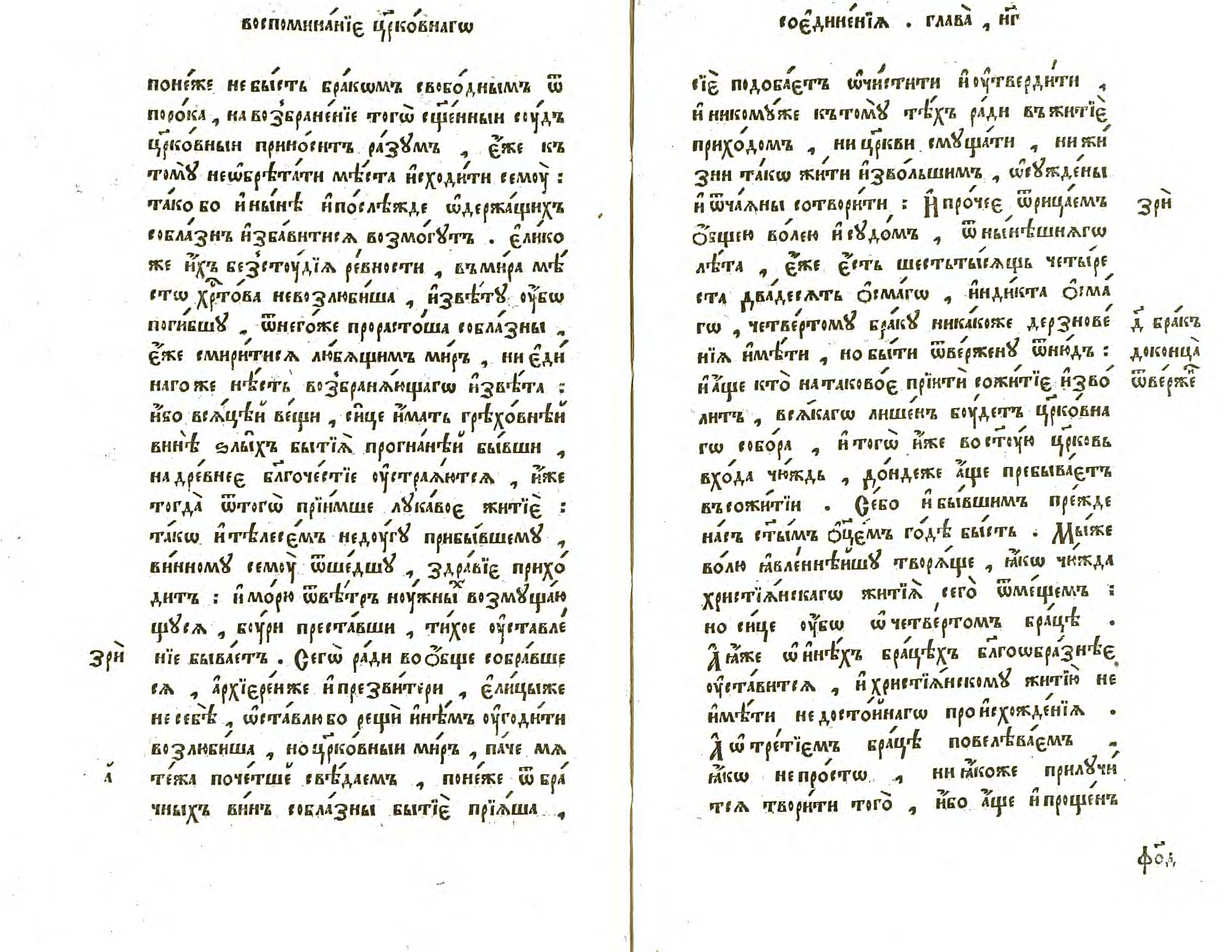 воспомина́нїє цр҃ко́внагѡ
поне́же небы́сть бра́кѡмъ свобо́днымъ ѿ
поро́ка , навозбране́нїе тогѡ̀ сщ҃е́нныи сꙋ́дъ
цр҃ко́вныи прино́ситъ ра́зꙋмъ , є҆́же къ
томꙋ̀ неѡ҆брѣта́ти мѣ́ста и҆сходи́ти семоу̀ :
та́ко бо и҆ны́нѣ и҆послѣ́жде ѡ҆держа́щихъ
собла́знъ и҆зба́витисѧ возмо́гꙋтъ . є҆ли́ко
же и҆́хъ безстоу́дїѧ ре́вности , въми́ра мѣ́
сто хр҃то́ва невозлюби́ша , и҆звѣ́тꙋ оу҆́бѡ
поги́бшꙋ , ѿнего́же прорасто́ша собла́зны ,
є҆́же смири́тисѧ лю́бѧщимъ ми́ръ , ни є҆ди́
наго же нѣ́сть возбранѧ́ющагѡ и҆звѣ́та :
и҆́бо всѧ́цѣй ве́щи , си́це и҆́мать грѣхо́внѣй
винѣ̀ ѕлы́хъ бытїѧ̀ прогна́нѣй бы́вши ,
надре́внее бл҃гоче́стїе оу҆страѧ́ютсѧ , и҆́же
тогда̀ ѿтогѡ̀ прїи́мше лꙋка́вое житїѐ :
та́кѡ и҆тѣлесе́мъ недоу́гꙋ прибы́вшемꙋ ,
ви́нномꙋ семоу̀ ѿше́дшꙋ , здра́вїе прихо́
дитъ : и҆мо́рю ѿвѣ́тръ ноу́жныⷯ возмꙋща́ю
щꙋсѧ , боу́ри преста́вши , ти́хое оу҆ставле́
зрѝ
нїе быва́етъ . Сегѡ̀ ра́ди воѻ҆́бще собра́вше
сѧ , а҆рхїере́иже и҆презви́тери , є҆ли́цыже
несебѣ̀ , ѡ҆ста́влю бо рещѝ и҆нѣ́мъ оу҆годи́ти
возлюби́ша , ноцр҃ко́вныи ми́ръ , па́че мѧ
а҃
те́жа поче́тше свѣ́даемъ , поне́же ѿ бра́
чныхъ ви́нъ собла́зны бытїѐ прїѧ́ша ,
соєдине́нїѧ . глава̀ , н҃г
сїѐ подоба́етъ ѡ҆чи́стити и҆оу҆тверди́ти ,
и҆ никомꙋ́же къ томꙋ̀ тѣ́хъ ра́ди въ житїѐ
прихо́домъ , ни цр҃кви смꙋща́ти , ни жи́
зни та́кѡ жи́ти и҆зво́льшимъ , ѡ҆сꙋжде́ны
и҆ ѿча́ѧны сотвори́ти : И҆ про́чее ѿрица́емъ
зрѝ
ѻ҆́бщею во́лею и҆сꙋдо́мъ , ѿ ны́нѣшнѧгѡ
лѣ́та , є҆́же є҆́сть шестьты́сѧщь четы́ре
ста два́десѧть ѻ҆сма́гѡ , и҆нди́кта ѻ҆сма́
гѡ , четве́ртомꙋ бра́кꙋ ника́коже дерзнове́
нїѧ и҆мѣ́ти , но бы́ти ѿве́рженꙋ ѿню́дъ :
д҃ бра́къ
доконца̀
ѿве́рже
и҆а҆́ще кто̀ натаково́е прїитѝ сожи́тїе и҆зво́
литъ , всѧ́кагѡ лише́нъ боу́детъ цр҃ко́вна
гѡ собо́ра , и҆ тогѡ̀ и҆́же во ст҃оую цр҃ковь
вхо́да чю́ждь , до́ндеже а҆́ще пребыва́етъ
въсожи́тїи . Се́бо и҆бы́вшимъ пре́жде
на́съ ст҃ы́мъ ѻ҆ц҃е́мъ го́дѣ бы́сть . Мы́же
во́лю ꙗ҆вле́ннѣйшꙋ творѧ́ще , ꙗ҆́кѡ чю́жда
христїѧ́нскагѡ житїѧ̀ сегѡ̀ ѿме́щемъ :
но си́це оу҆́бѡ ѡ҆ четве́ртомъ бра́цѣ .
А҆ ꙗ҆́же ѡ҆ и҆нѣ́хъ бра́цѣхъ бл҃гоѡбра́знѣе
оу҆ста́витсѧ , и҆ христїѧ́нскомꙋ житїю̀ не
и҆мѣ́ти недосто́йнагѡ происхожде́нїѧ .
А҆ ѡ҆ тре́тїемъ бра́цѣ повелѣва́емъ ,
ꙗ҆́кѡ непро́стѡ , ни ꙗ҆́коже прилꙋчи́
тсѧ твори́ти того̀ , и҆́бо а҆́ще и҆ проще́нъ
ф҃од